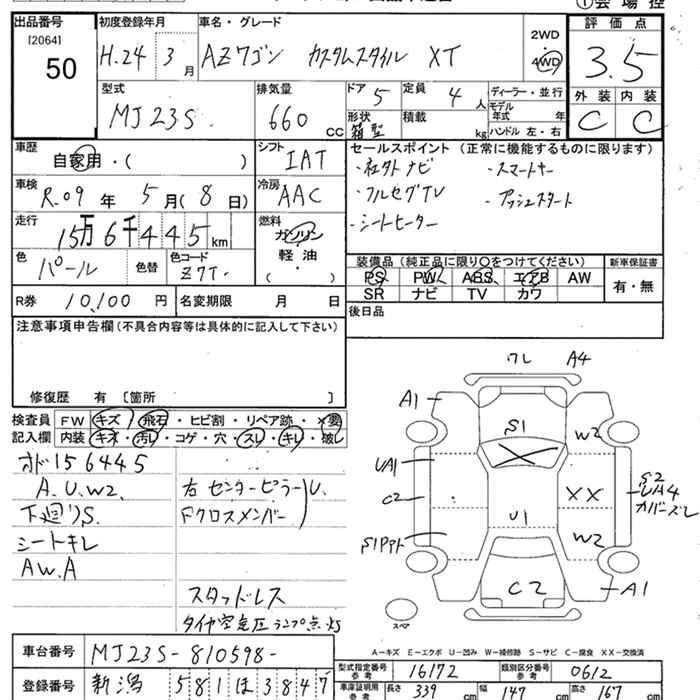 ①会場控
出品番号
[2064]
50
初度登録年月
H.24 3月
車名・グレード
AZワゴン カスタムスタイル XT
2WD
4WD
評価点
3.5
外装 内装
C C
型式
MJ23S
排気量
660 CC
ドア 5
定員 4人
形状 箱型
積載 kg
ディーラー・並行
モデル年式 年
ハンドル 左・右
車歴
自家用・( )
シフト
IAT
車検
R.09年 5月(8日)
冷房
AAC
走行
15万6千445km
燃料
ガソリン
軽油
・
( )
色
パール
色替
色コード
Z7T
R券 10,100円
名変期限 月 日
セールスポイント (正常に機能するものに限ります)
・社外ナビ ・スマートキー
・フルセグTV ・プッシュスタート
・シートヒーター
装備品(純正品に限り○をつけてください)
PS PW ABS エアB AW
SR ナビ TV カワ
新車保証書
有・無
後日品
注意事項申告欄(不具合内容等は具体的に記入して下さい)
修復歴 有 [箇所 ]
検査員 FW キズ・飛石・ヒビ割・リペア跡・×要
記入欄 内装 キズ・汚れ・コゲ・穴・スレ・キレ・破レ
オド156445
A.U.W2.
下廻りS.
シートキレ
AW.A
右センターピラー U.
Fクロスメンバー
スタッドレス
タイヤ空気圧ランプ点灯
ワレ A4
A1
S1
W2
UA1
C2
XX
S2
UA4
カバーズレ
U1
S1アト
W2
C2
A1
スペア
A－キズ E－エクボ U－凹み W－補修跡 S－サビ C－腐食 XX－交換済
車台番号 MJ23S-810598-
登録番号 新潟 581 ほ 3847
型式指定番号 参考 16172
類別区分番号 参考 0612
車庫証明用 参考 長さ 339 cm 幅 147 cm 高さ 167 cm